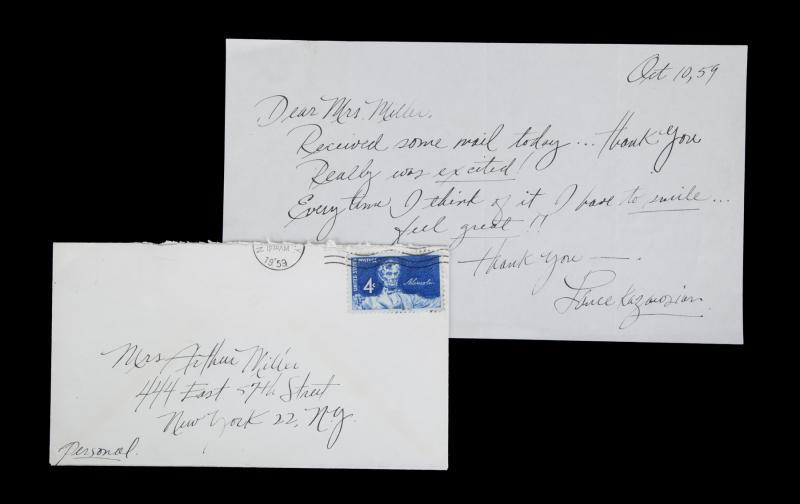 Oct 10, 59
Dear Mrs. Miller,
Received some mail today... Thank You
Really was excited!
Everytime I think of it I have to smile...
feel great!!
Thank You —.
Lance Kazarosian
1959
UNITED STATES POSTAGE
4¢
A. Lincoln
Mrs Arthur Miller
444 East 57th Street
New York 22, N.Y.
Personal.